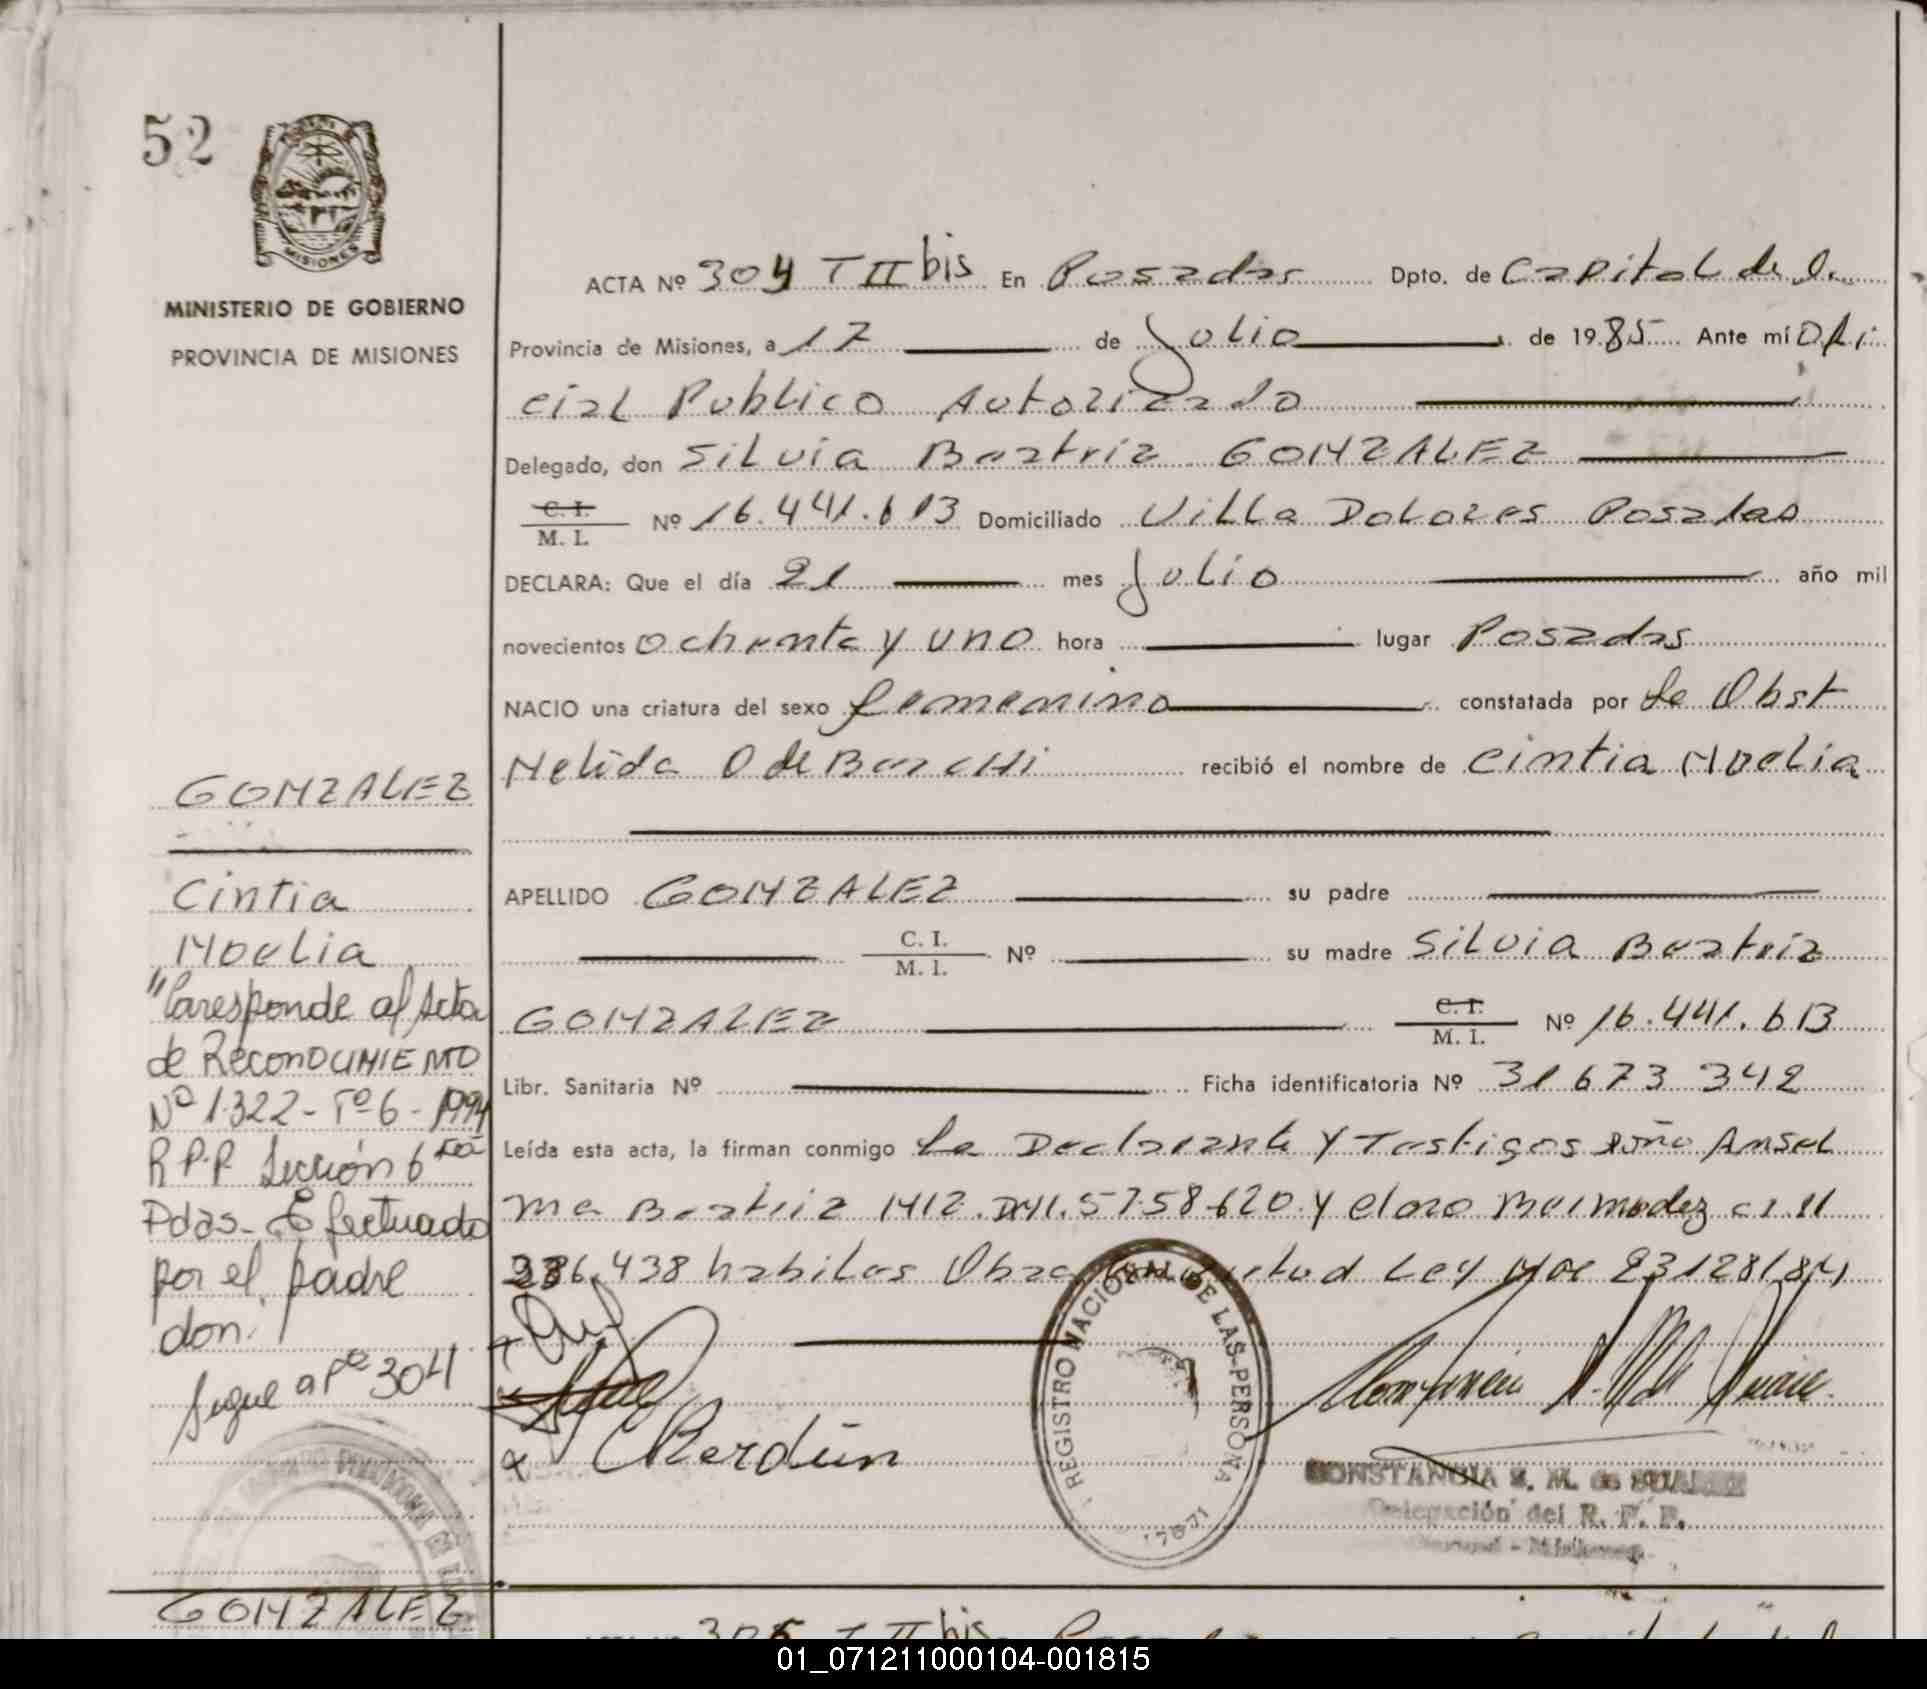 52
MISIONES
MINISTERIO DE GOBIERNO
PROVINCIA DE MISIONES
ACTA Nº 304 T II bis En Posadas Dpto. de Capital de la
Provincia de Misiones, a 17 de Julio de 1985 Ante mí Ofi
cial Publico Autorizado
Delegado, don Silvia Beatriz GONZALEZ
C. I.
M. I. Nº 16.441.613 Domiciliado Villa Dolores Posadas
DECLARA: Que el día 21 mes Julio año mil
novecientos ochenta y uno hora lugar Posadas
NACIO una criatura del sexo femenino constatada por la Obst
Nelida O de recibió el nombre de Cintia Noelia
APELLIDO GONZALEZ su padre
C. I.
M. I. Nº su madre Silvia Beatriz
GONZALEZ C. I.
M. I. Nº 16.441.613
Libr. Sanitaria Nº Ficha identificatoria Nº 31 673 342
Leída esta acta, la firman conmigo la Declarante y Testigos doña Ansel
ma Beatriz 5758620 y Bermudez
438 habiles Ley 23128/84
GONZALEZ
Cintia
Noelia
"Coresponde al Acta
de RECONOCIMIENTO
Nº 1.322 - Tº 6 - 1994
R.P.P. Sección 6ta
Pdas. Efectuado
por el padre
don.
Sigue a Fº 304
REGISTRO NACIONAL DE LAS PERSONA
CONSTANCIA E. M. de SUAREZ
Delegación del R. P. P.
GONZALEZ
305 T II bis
01_071211000104-001815